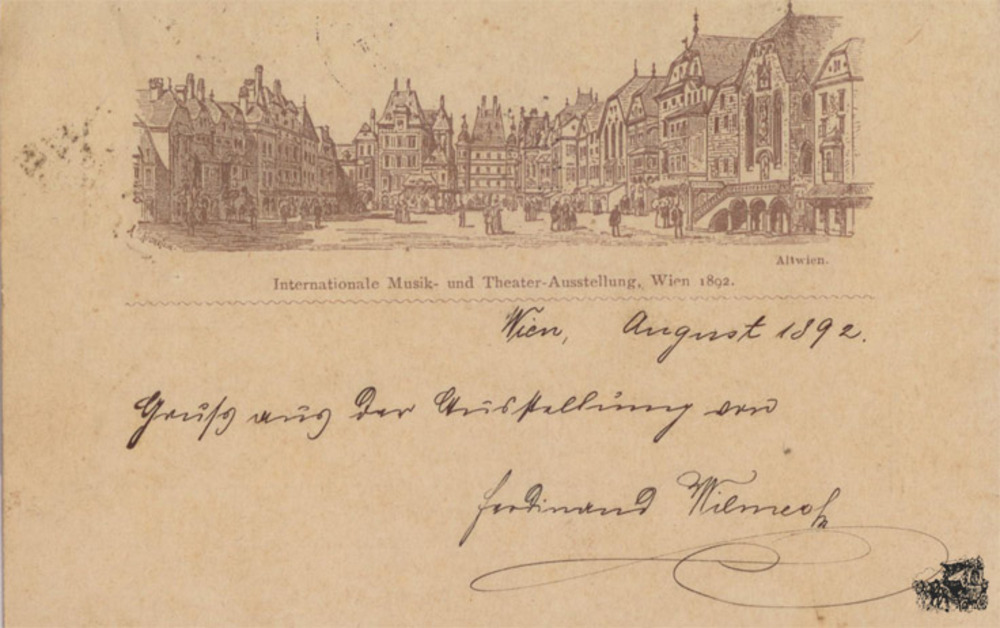 Altwien.
Internationale Musik- und Theater-Ausstellung, Wien 1892.
Wien, August 1892.
Gruß aus der Ausstellung von
Ferdinand